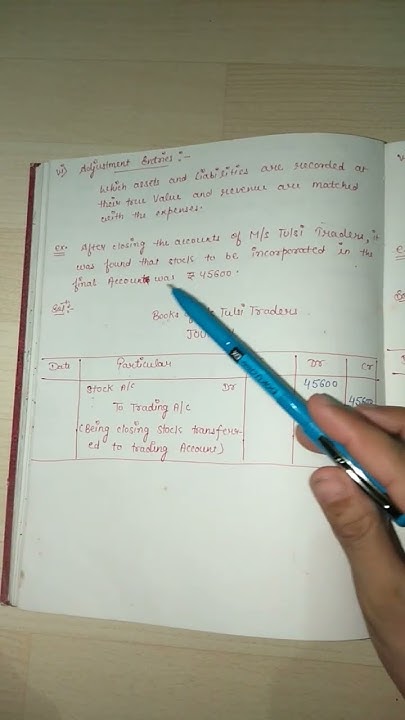 vi) Adjustment Entries :-
Which assets and liabilities are recorded at
their true value and revenue are matched
with the expenses.
ex:- After closing the accounts of M/s Tulsi Traders, it
was found that stock to be incorporated in the
final Account was ₹ 45600.
Sol:-
Books Tulsi Traders
JOU
Date Particular Dr Cr
Stock A/C Dr 45600
To Trading A/C 4560
(Being closing stock transferr-
ed to trading Account)